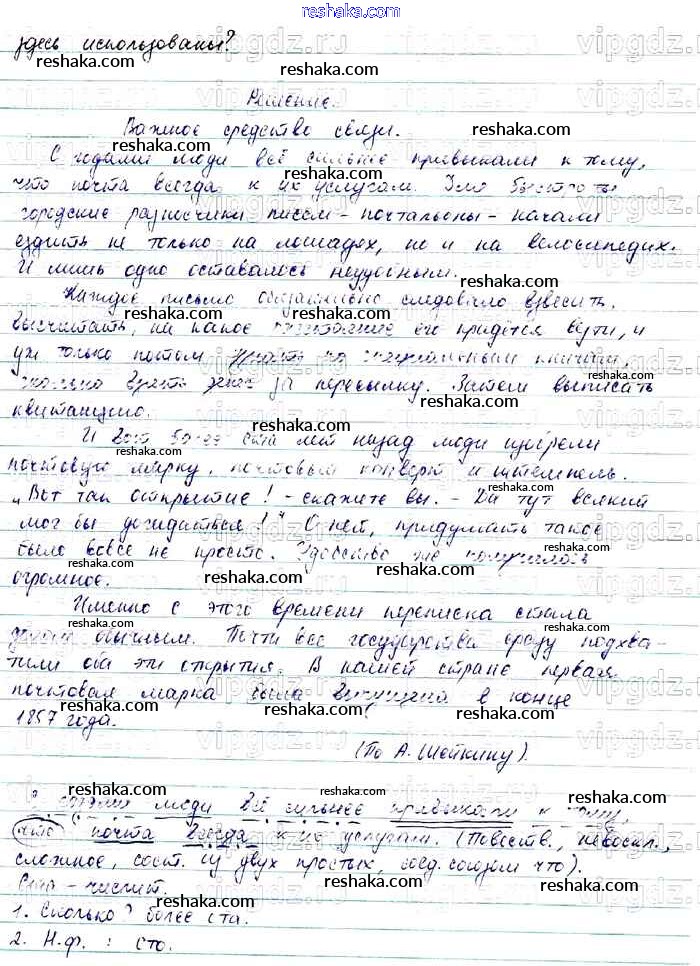 reshaka.com
здесь использованы?
Решение.
Важное средство связи.
С годами люди всё сильнее привыкали к тому,
что почта всегда к их услугам. Для быстроты
городские разносчики писем - почтальоны - начали
ездить не только на лошадях, но и на велосипедах.
И лишь одно оставалось неудобным.
Каждое письмо обязательно следовало взвесить,
высчитать, на какое расстояние его придётся везти, и
уж только потом по специальным
сколько взять за пересылку. Затем выписать
квитанцию.
И вот более ста лет назад люди изобрели
почтовую марку, почтовый конверт и штемпель.
„Вот так открытие! - скажите вы. - Да тут всякий
мог бы догадаться!" О нет, придумать такое
было вовсе не просто. Удобство же получилось
огромное.
Именно с этого времени переписка стала
делом обычным. Почти все государства сразу подхва-
тили оба эти открытия. В нашей стране первая
почтовая марка была выпущена в конце
1857 года.
(По А. Шейкину).
С годами люди всё сильнее привыкали к тому,
что почта всегда к их услугам. (Повеств., невоскл.,
сложное, сост. из двух простых, соед. союзом что).
Ста - числит.
1. Сколько? более ста.
2. Н.ф. : сто.